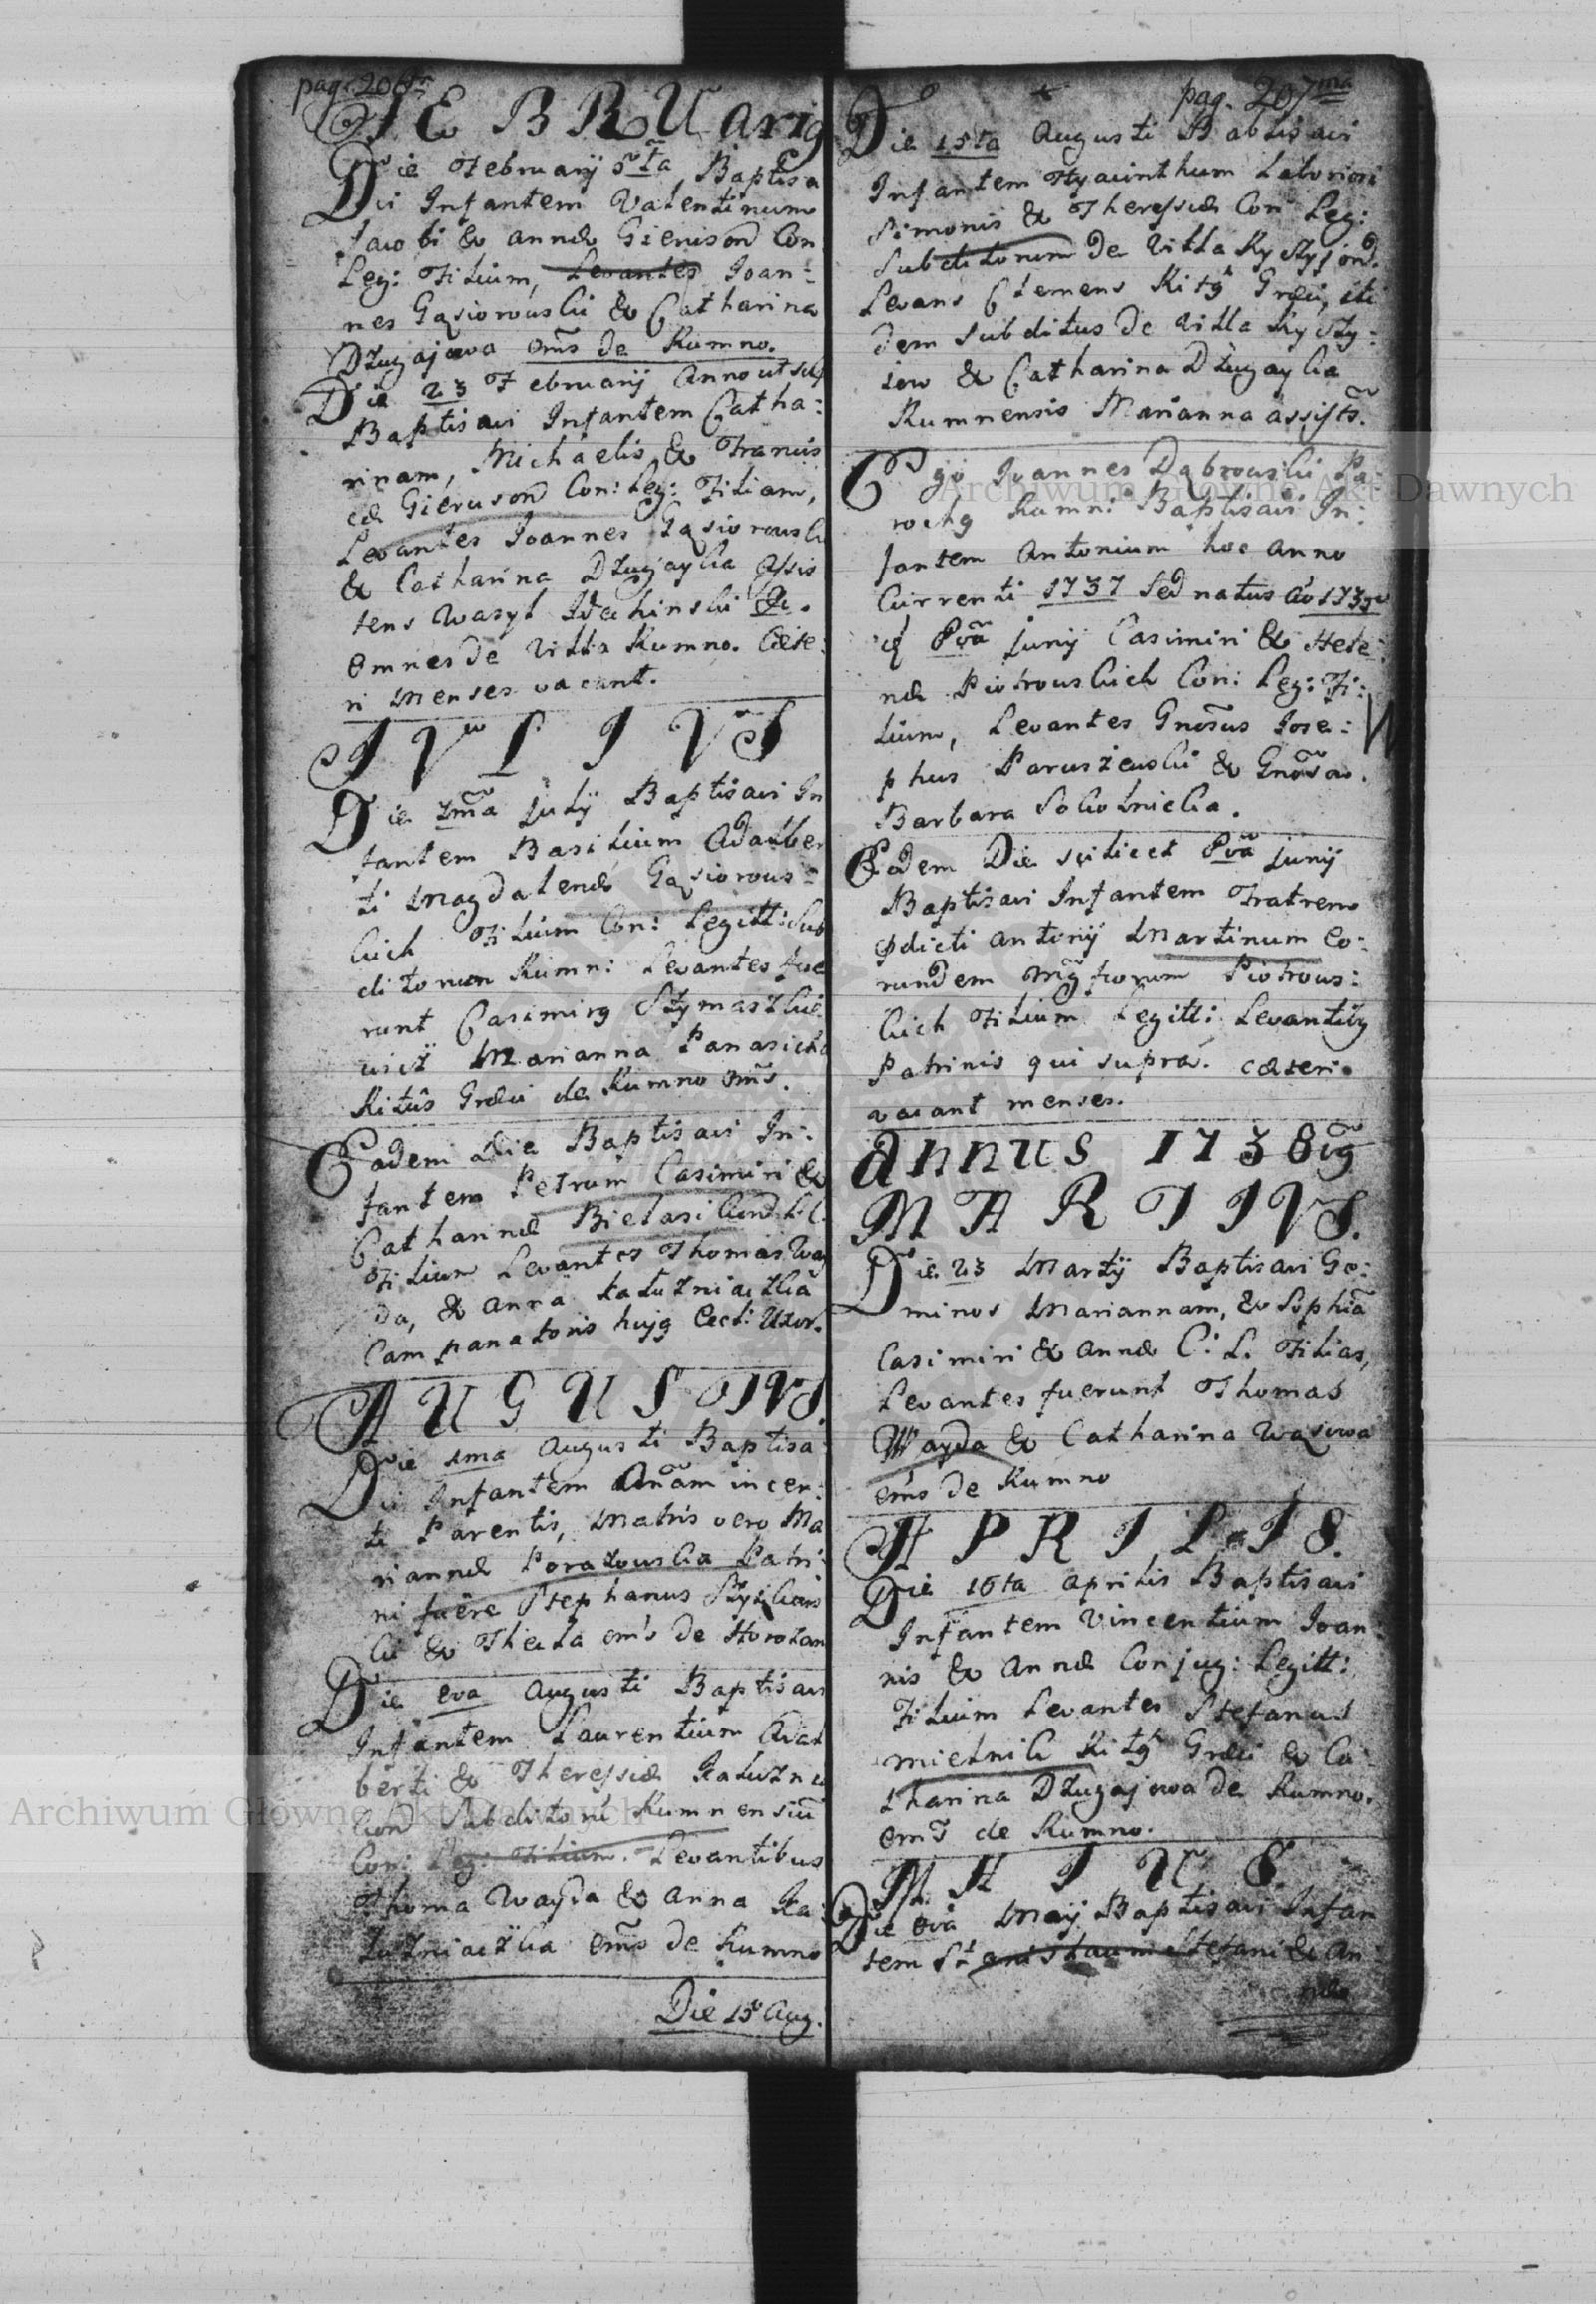 pag. 206ta
FEBRUariꝯ
Die Februarij 5ta Baptisa
vi Infantem Valentinum
Jacobi & Annæ Gienison Con
Leg: Filium, Levantes Joan=
nes Gąsiorouski & Catharina
Dzugajowa oms de Rumno.
Die 23 Februarij Anno ut sup
Baptisavi Infantem Catha:
rinam, Michaelis & Francis
cæ Gieruson Con: Leg: Filiam,
Levantes Joannes Gąsiorouski
& Catharina Dzugayka Assis
tens Wasyl
Omnes de Villa Rumno. Cæte:
ri Menses vacant.
IVLIVS
Die 7ma Julij Baptisavi In
fantem Basilium Adalber
ti Magdalenæ Gąsiorous=
kich Filium Con: Legitt: Sub
ditorum Rumn: Levantes fue
runt Casimirꝯ Szymaszkie
wicz Marianna Panasicha
Ritûs Græci de Rumno oms.
Eadem Die Baptisavi In:
fantem Petrum Casimiri &
Catharinæ Bielasikow L. C.
Filium Levantes Thomas Way
da, & Anna Kałuzniaczka
Campanatoris hujꝯ Eccl: Uxor.
AUGUSTIVS.
Die 1ma Augusti Baptisa
vi Infantem Annam incer:
ti Parentis, Matris vero Ma
riannæ Porazouska Patri
ni fuere Stephanus
ki & Thecla oms de Horozan
Die 8va Augusti Baptisavi
Infantem Laurentium Adal
berti & Theressiæ Kałuznia
kow Subditorũ Rumnensiũ
Con: Leg: Filium. Levantibus
Thoma Wayda & Anna Ka:
łuzniaczka oms de Rumno
Die 15 Aug.
pag. 207ma
Die 15ta Augusti Babtisavi
Infantem Hyacinthum Laboriosi
Simonis & Theressiæ Con Leg:
Subditorum de Villa
Levans Clemens Ritꝯ Græci, iti
dem Subditus de Villa
iow & Catharina Dzugayka
Rumnensis Marianna assists.
Ego Joannes Dąbrouski Pa:
rochꝯ Rumn: Baptisavi In:
fantem Antonium hoc anno
Currenti 1737 Sed natus Ao
8va Junij Casimiri & Hele:
næ Piotrouskich Con: Leg: Fi:
lium, Levantes Gnosus Jose:
phus Paruszeuski & Gnosa
Barbara Sokolnicka.
Eodem Die scilicet 8va Junij
Baptisavi Infantem Fratrem
p̃dicti Antonij Martinum eo:
rundem Mgforum Piotrous:
kich Filium Legitt: Levantibꝯ
Patrinis qui supra. cæteri
vacant menses.
Annus 1738vꝯ
MARTIVS.
Die 23 Martij Baptisavi Ge:
minos Mariannam, & Sophiã
Casimiri & Annæ C: L. Filias,
Levantes fuerunt Thomas
Wayda & Catharina Wąsowa
oms de Rumno
APRILIS.
Die 16ta Aprilis Baptisavi
Infantem Vincentium Joan
nis & Annæ Conjug: Legitt:
Filium Levantes Stefanus
Mielnik Ritꝯ Græci & Ca
tharina Dzugajowa de Rumno.
oms de Rumno.
MAIUS.
Die 8va Maij Baptisavi Infan
tem Stanislaum Stefani & An
næ
Archiwum Główne Akt Dawnych
Archiwum Główne Akt Dawnych